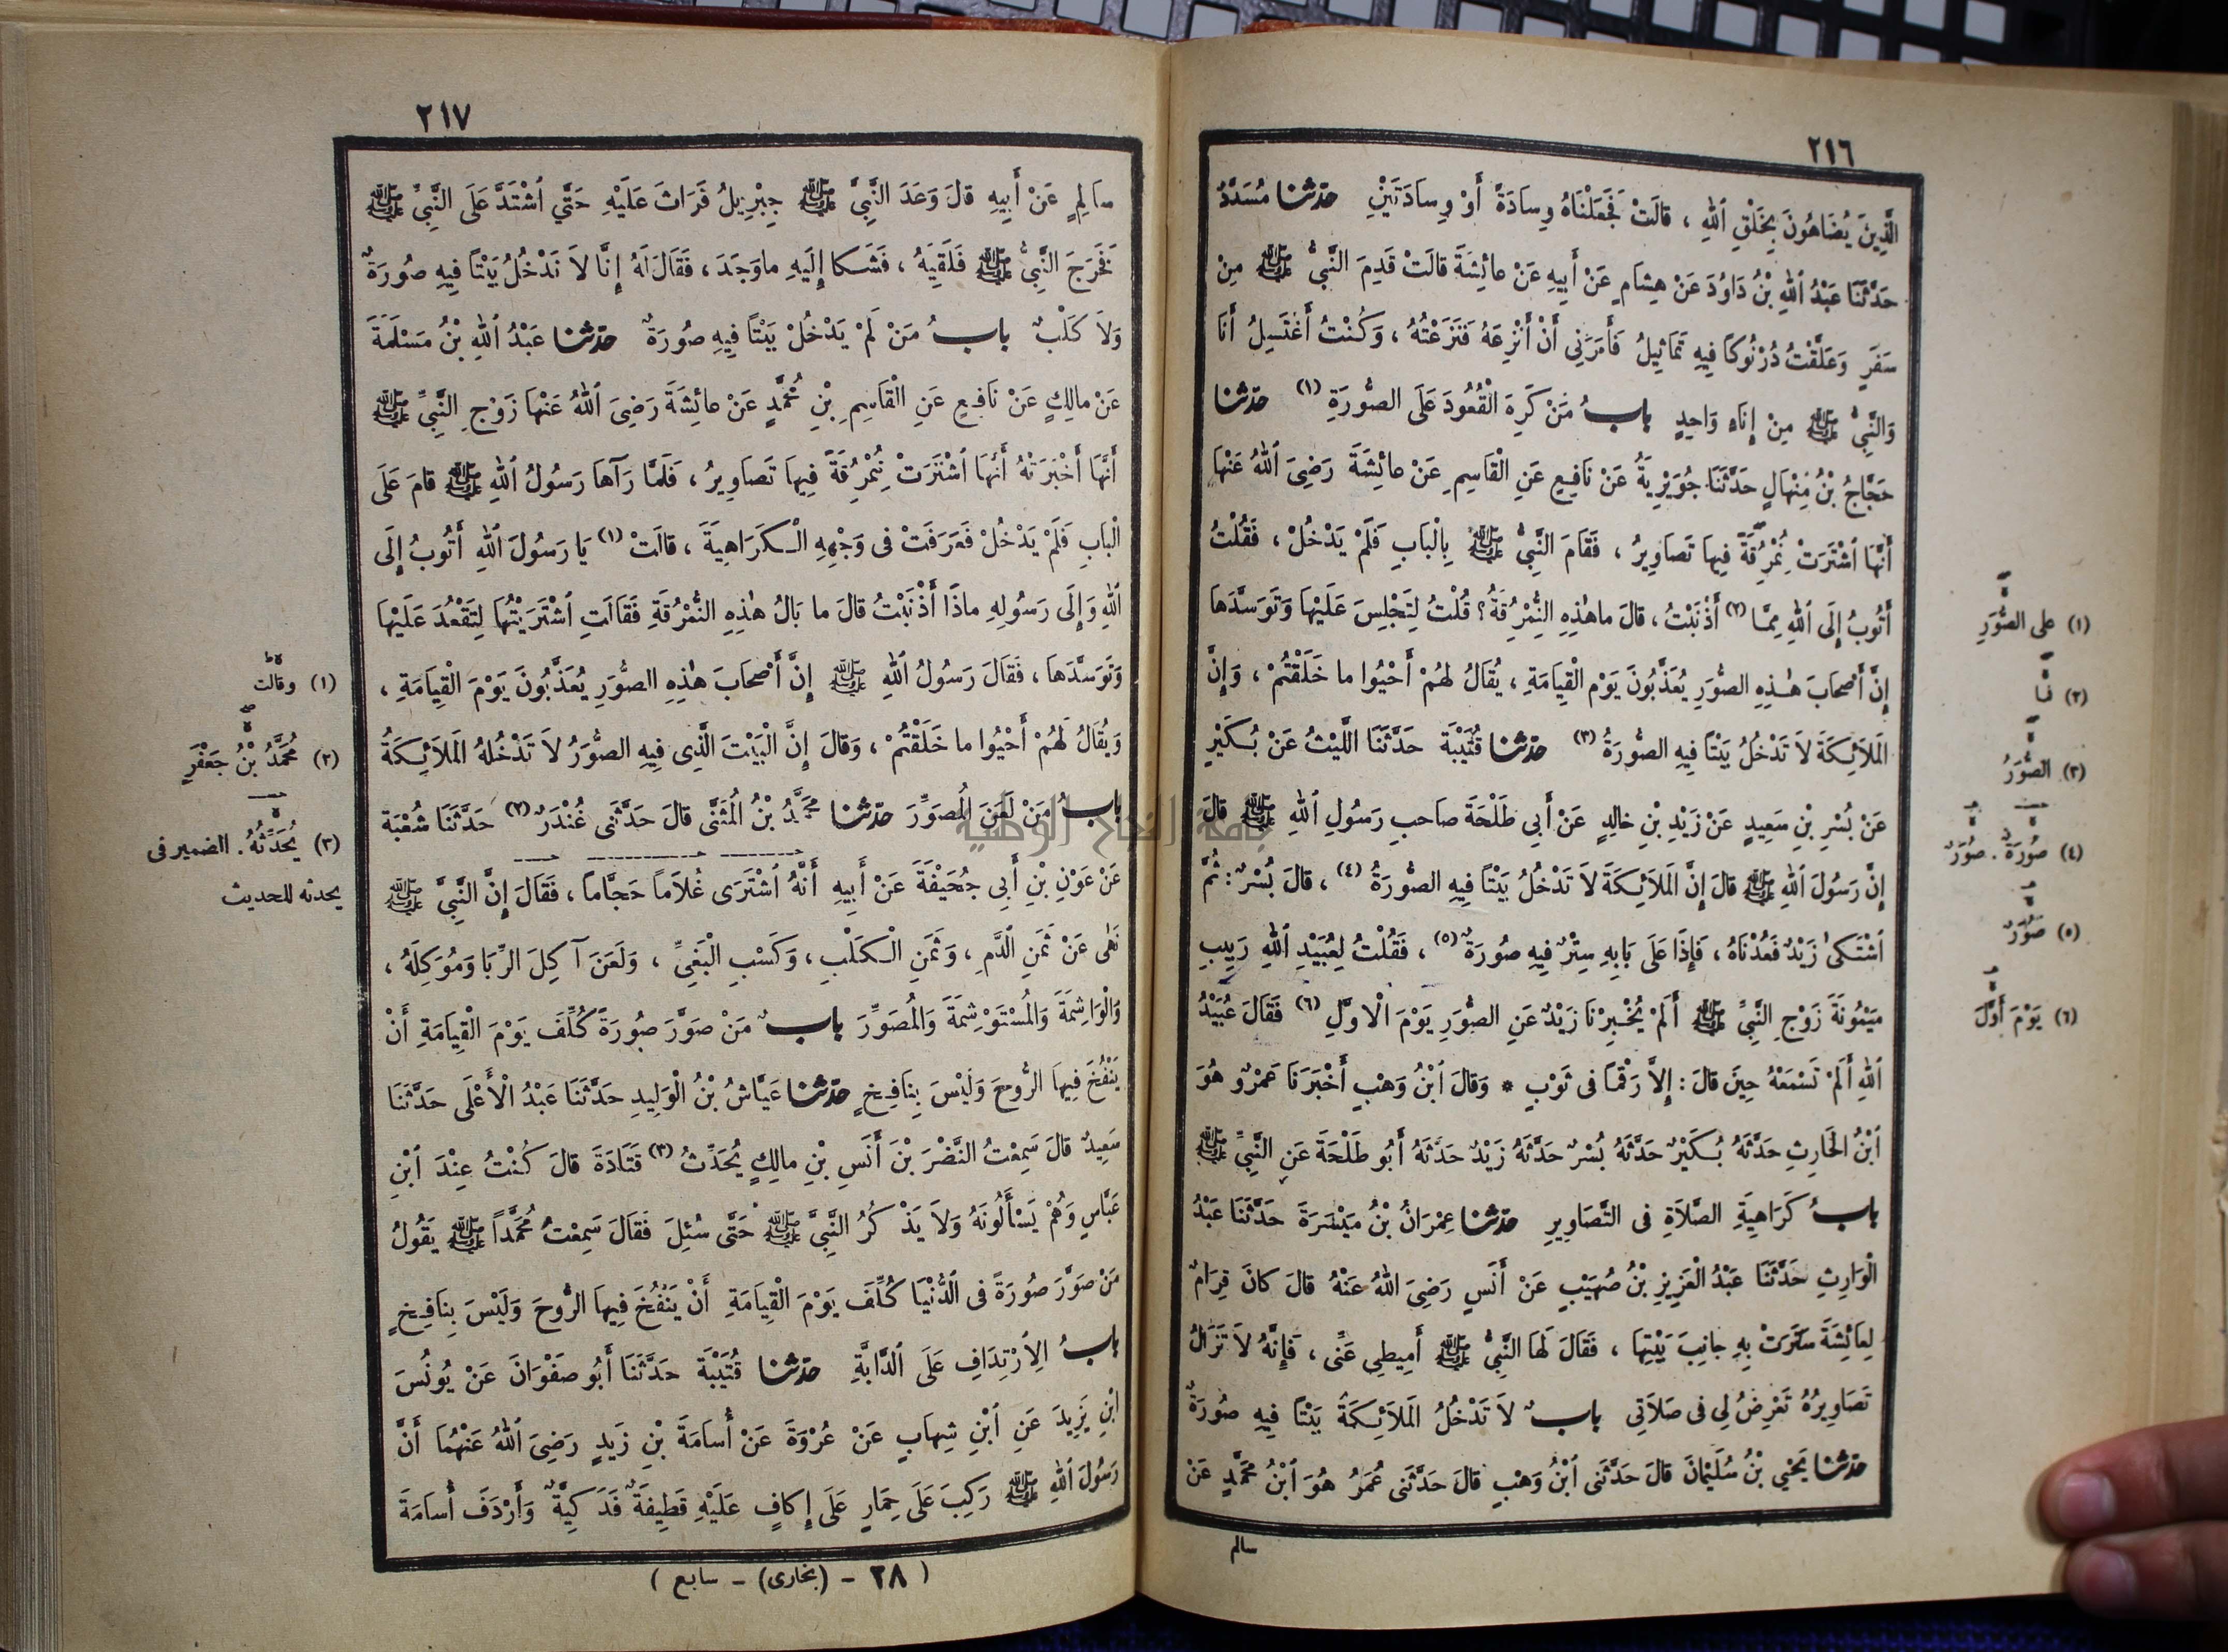 ٢١٦
الَّذِينَ يُضَاهُونَ بِخَلْقِ اللهِ ، قالَتْ فَجَعَلْنَاهُ وِسادَةً أَوْ وِسادَتَيْنِ حدّثنا مُسَدَّدٌ
حَدَّثَنَا عَبْدُ اللهِ بْنُ دَاوُدَ عَنْ هِشَامٍ عَنْ أَبِيهِ عَنْ عائِشَةَ قالَتْ قَدِمَ النَّبِيُّ ﷺ مِنْ
سَفَرٍ وَعَلَّقْتُ دُرْنُوكًا فِيهِ تَمَاثِيلُ فَأَمَرَنِي أَنْ أَنْزِعَهُ فَنَزَعْتُهُ ، وَكُنْتُ أَغْتَسِلُ أَنَا
وَالنَّبِيُّ ﷺ مِنْ إِنَاءٍ وَاحِدٍ بابُ مَنْ كَرِهَ الْقُعُودَ عَلَى الصُّورَةِ (١) حدّثنا
حَجَّاجُ بْنُ مِنْهَالٍ حَدَّثَنَا جُوَيْرِيَةُ عَنْ نَافِعٍ عَنِ الْقَاسِمِ عَنْ عائِشَةَ رَضِيَ اللهُ عَنْهَا
أَنَّهَا اشْتَرَتْ نُمْرُقَةً فِيهَا تَصَاوِيرُ ، فَقَامَ النَّبِيُّ ﷺ بِالْبَابِ فَلَمْ يَدْخُلْ ، فَقُلْتُ
أَتُوبُ إِلَى اللهِ مِمَّا (٢) أَذْنَبْتُ ، قالَ ما هٰذِهِ النُّمْرُقَةُ؟ قُلْتُ لِتَجْلِسَ عَلَيْهَا وَتَوَسَّدَها
إِنَّ أَصْحَابَ هٰذِهِ الصُّوَرِ يُعَذَّبُونَ يَوْمَ الْقِيَامَةِ ، يُقَالُ لَهُمْ أَحْيُوا ما خَلَقْتُمْ ، وَإِنَّ
المَلَائِكَةَ لَا تَدْخُلُ بَيْتًا فِيهِ الصُّورَةُ (٣) حدّثنا قُتَيْبَةُ حَدَّثَنَا اللَّيْثُ عَنْ بُكَيْرٍ
عَنْ بُسْرِ بْنِ سَعِيدٍ عَنْ زَيْدِ بْنِ خالِدٍ عَنْ أَبِي طَلْحَةَ صاحِبِ رَسُولِ اللهِ ﷺ قالَ
إِنَّ رَسُولَ اللهِ ﷺ قالَ إِنَّ المَلَائِكَةَ لَا تَدْخُلُ بَيْتًا فِيهِ الصُّورَةُ (٤) ، قالَ بُسْرٌ : ثُمَّ
اشْتَكَىٰ زَيْدٌ فَعُدْنَاهُ ، فَإِذَا عَلَى بَابِهِ سِتْرٌ فِيهِ صُورَةٌ (٥) ، فَقُلْتُ لِعُبَيْدِ اللهِ رَبِيبِ
مَيْمُونَةَ زَوْجِ النَّبِيِّ ﷺ أَلَمْ يُخْبِرْنَا زَيْدٌ عَنِ الصُّوَرِ يَوْمَ الْاوَّلِ (٦) فَقَالَ عُبَيْدُ
اللهِ أَلَمْ تَسْمَعْهُ حِينَ قالَ : إِلَّا رَقْمًا فى ثَوْبٍ * وَقالَ ابْنُ وَهْبٍ أَخْبَرَنَا عَمْرٌو هُوَ
ابْنُ الحَارِثِ حَدَّثَهُ بُكَيْرٌ حَدَّثَهُ بُسْرٌ حَدَّثَهُ زَيْدٌ حَدَّثَهُ أَبُو طَلْحَةَ عَنِ النَّبِيِّ ﷺ
بابُ كَرَاهِيَةِ الصَّلَاةِ فى التَّصَاوِيرِ حدّثنا عِمْرَانُ بْنُ مَيْسَرَةَ حَدَّثَنَا عَبْدُ
الْوَارِثِ حَدَّثَنَا عَبْدُ الْعَزِيزِ بْنُ صُهَيْبٍ عَنْ أَنَسٍ رَضِيَ اللهُ عَنْهُ قالَ كانَ قِرَامٌ
لِعَائِشَةَ سَتَرَتْ بِهِ جانِبَ بَيْتِهَا ، فَقَالَ لَهَا النَّبِيُّ ﷺ أَمِيطِي عَنِّى ، فَإِنَّهُ لَا تَزَالُ
تَصَاوِيرُهُ تَعْرِضُ لِى فى صَلَاتِى بابٌ لَا تَدْخُلُ المَلَائِكَةُ بَيْتًا فِيهِ صُورَةٌ
حدّثنا يَحْيىٰ بْنُ سُلَيْمَانَ قالَ حَدَّثَنى ابْنُ وَهْبٍ قالَ حَدَّثَنى عُمَرُ هُوَ ابْنُ مُحَمَّدٍ عَنْ
سالم
(١) على الصُّوَرِ
(٢) فما
(٣) الصُّوَرُ
(٤) صُورَةٌ . صُوَرٌ
(٥) صُوَرٌ
(٦) يَوْمَ أَوَّلَ
٢١٧
سالِمٍ عَنْ أَبِيهِ قالَ وَعَدَ النَّبِيَّ ﷺ جِبْرِيلُ فَرَاثَ عَلَيْهِ حَتَّى اشْتَدَّ عَلَى النَّبِيِّ ﷺ
فَخَرَجَ النَّبِيُّ ﷺ فَلَقِيَهُ ، فَشَكا إِلَيْهِ ما وَجَدَ ، فَقَالَ لَهُ إِنَّا لَا نَدْخُلُ بَيْتًا فِيهِ صُورَةٌ
وَلَا كَلْبٌ بابُ مَنْ لَمْ يَدْخُلْ بَيْتًا فِيهِ صُورَةٌ حدّثنا عَبْدُ اللهِ بْنُ مَسْلَمَةَ
عَنْ مالِكٍ عَنْ نَافِعٍ عَنِ الْقَاسِمِ بْنِ مُحَمَّدٍ عَنْ عائِشَةَ رَضِيَ اللهُ عَنْهَا زَوْجِ النَّبِيِّ ﷺ
أَنَّهَا أَخْبَرَتْهُ أَنَّهَا اشْتَرَتْ نُمْرُقَةً فِيهَا تَصَاوِيرُ ، فَلَمَّا رَآهَا رَسُولُ اللهِ ﷺ قامَ عَلَى
الْبَابِ فَلَمْ يَدْخُلْ فَعَرَفَتْ فى وَجْهِهِ الْكَرَاهِيَةَ ، قالَتْ (١) يَا رَسُولَ اللهِ أَتُوبُ إِلَى
اللهِ وَإِلَى رَسُولِهِ ماذَا أَذْنَبْتُ قالَ ما بَالُ هٰذِهِ النُّمْرُقَةِ فَقَالَتِ اشْتَرَيْتُهَا لِتَقْعُدَ عَلَيْهَا
وَتَوَسَّدَهَا ، فَقَالَ رَسُولُ اللهِ ﷺ إِنَّ أَصْحَابَ هٰذِهِ الصُّوَرِ يُعَذَّبُونَ يَوْمَ الْقِيَامَةِ ،
وَيُقَالُ لَهُمْ أَحْيُوا ما خَلَقْتُمْ ، وَقالَ إِنَّ الْبَيْتَ الَّذِى فِيهِ الصُّوَرُ لَا تَدْخُلُهُ المَلَائِكَةُ
بابُ مَنْ لَعَنَ الْمُصَوِّرَ حدّثنا مُحَمَّدُ بْنُ الْمُثَنَّى قالَ حَدَّثَنى غُنْدَرٌ (٢) حَدَّثَنَا شُعْبَةُ
عَنْ عَوْنِ بْنِ أَبِى جُحَيْفَةَ عَنْ أَبِيهِ أَنَّهُ اشْتَرَى غُلَاماً حَجَّاماً ، فَقَالَ إِنَّ النَّبِيَّ ﷺ
نَهٰى عَنْ ثَمَنِ الدَّمِ ، وَثَمَنِ الْكَلْبِ ، وَكَسْبِ الْبَغِيِّ ، وَلَعَنَ آكِلَ الرِّبَا وَمُوكِلَهُ ،
وَالْوَاشِمَةَ وَالْمُسْتَوْشِمَةَ وَالْمُصَوِّرَ بابٌ مَنْ صَوَّرَ صُورَةً كُلِّفَ يَوْمَ الْقِيَامَةِ أَنْ
يَنْفُخَ فِيهَا الرُّوحَ وَلَيْسَ بِنَافِخٍ حدّثنا عَيَّاشُ بْنُ الْوَلِيدِ حَدَّثَنَا عَبْدُ الْأَعْلَى حَدَّثَنَا
سَعِيدٌ قالَ سَمِعْتُ النَّضْرَ بْنَ أَنَسِ بْنِ مالِكٍ يُحَدِّثُ (٣) قَتَادَةَ قالَ كُنْتُ عِنْدَ ابْنِ
عَبَّاسٍ وَهُمْ يَسْأَلُونَهُ وَلَا يَذْكُرُ النَّبِيَّ ﷺ حَتَّى سُئِلَ فَقَالَ سَمِعْتُ مُحَمَّداً ﷺ يَقُولُ
مَنْ صَوَّرَ صُورَةً فى الدُّنْيَا كُلِّفَ يَوْمَ الْقِيَامَةِ أَنْ يَنْفُخَ فِيهَا الرُّوحَ وَلَيْسَ بِنَافِخٍ
بابُ الِارْتِدَافِ عَلَى الدَّابَّةِ حدّثنا قُتَيْبَةُ حَدَّثَنَا أَبُو صَفْوَانَ عَنْ يُونُسَ
ابْنِ يَزِيدَ عَنِ ابْنِ شِهَابٍ عَنْ عُرْوَةَ عَنْ أُسَامَةَ بْنِ زَيْدٍ رَضِيَ اللهُ عَنْهُمَا أَنَّ
رَسُولَ اللهِ ﷺ رَكِبَ عَلَى حِمَارٍ عَلَى إِكافٍ عَلَيْهِ قَطِيفَةٌ فَدَكِيَّةٌ وَأَرْدَفَ أُسَامَةَ
( ٢٨ - (بخارى) - سابع )
(١) وقالت
(٢) مُحَمَّدُ بْنُ جَعْفَرٍ
(٣) يُحَدِّثُهُ . الضمير فى
يحدثه للحديث
جامعة النجاح الوطنية